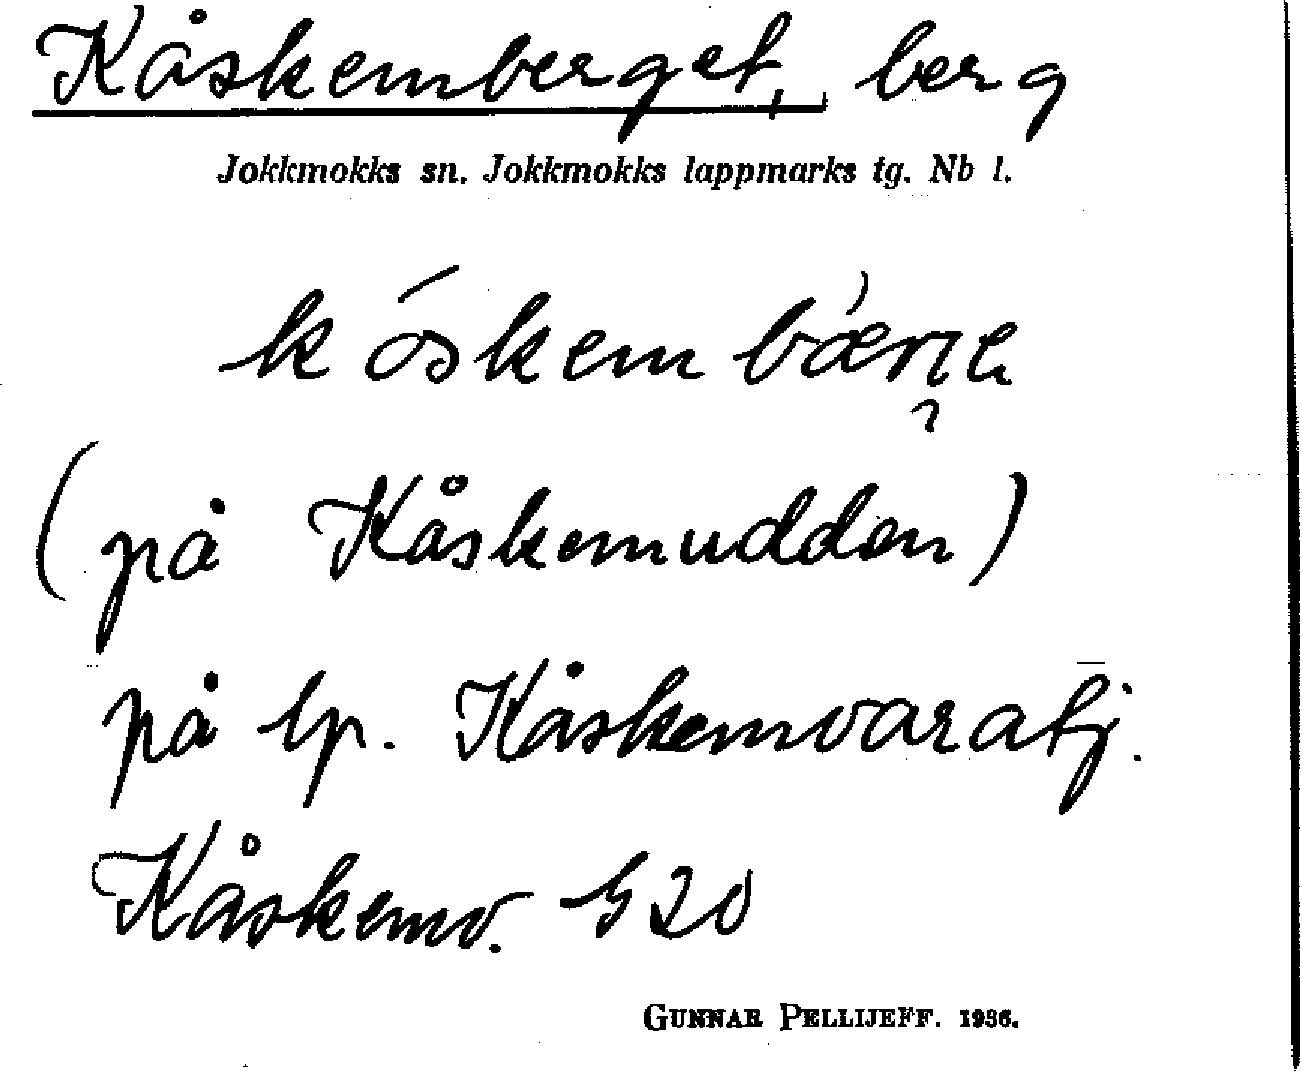 Kåskemberget, berg
Jokkmokks sn. Jokkmokks lappmarks tg. Nb l.
kóskembærje
(på Kåskemudden)
på lp. Kåskemvaratj.
Kåskemv. G20
GUNNAR PELLIJEFF. 1936.